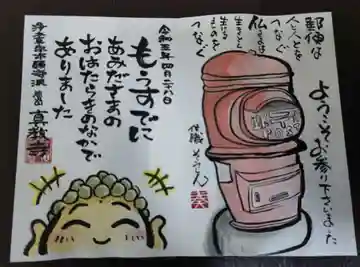 ようこそお参り下さいました
郵便は
人と人とを
つなぐ
仏さまは
生きる
ものを
つなぐ
POST
住職
令和三年四月二八日
もうすでに
あみださまの
おはたらきのなかで
ありました
浄土真宗本願寺派
真教寺